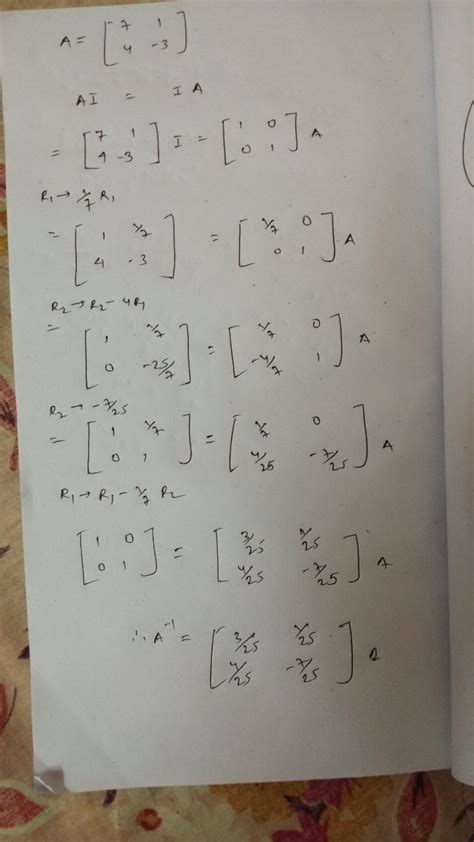 A = [ 7 1
4 -3 ]
AI = IA
= [ 7 1
4 -3 ] I = [ 1 0
0 1 ] A
R₁ → 1/7 R₁
= [ 1 1/7
4 -3 ] = [ 1/7 0
0 1 ] A
R₂ → R₂ - 4R₁
= [ 1 1/7
0 -25/7 ] = [ 1/7 0
-4/7 1 ] A
R₂ → -7/25
= [ 1 1/7
0 1 ] = [ 1/7 0
4/25 -7/25 ] A
R₁ → R₁ - 1/7 R₂
[ 1 0
0 1 ] = [ 3/25 1/25
4/25 -7/25 ] A
∴ A⁻¹ = [ 3/25 1/25
4/25 -7/25 ]